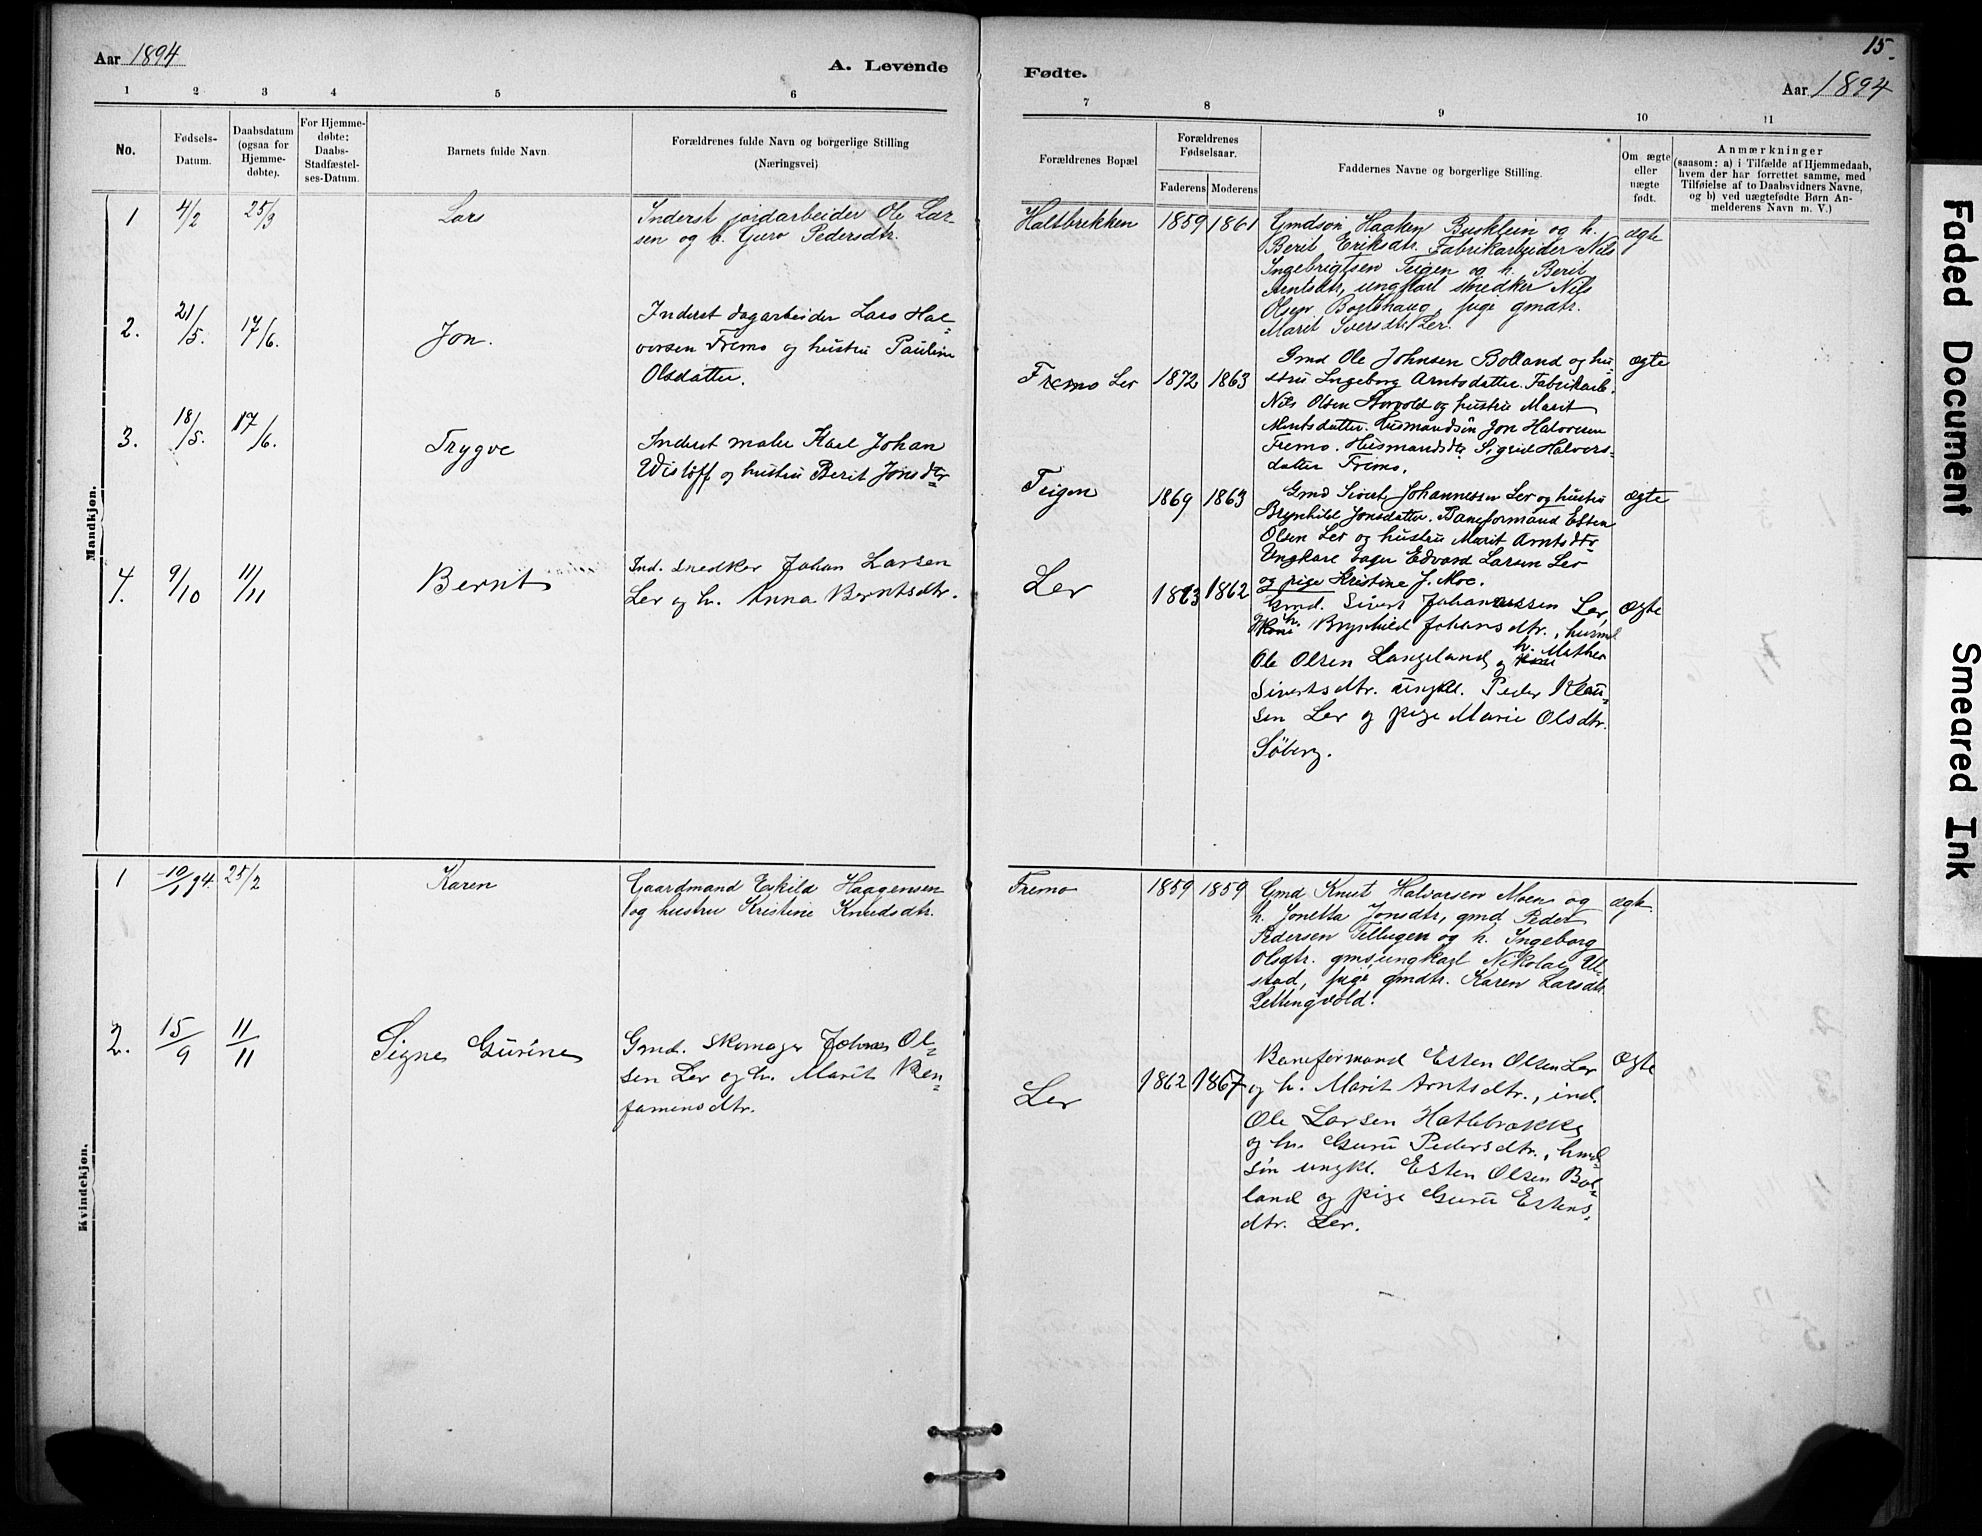 Aar 1894
A. Levende
1 2 3 4 5 6
No.
Fødsels-
Datum.
Daabsdatum
(ogsaa for
Hjemme-
døbte).
For Hjemme-
døbte:
Daabs-
Stadfæstel-
ses-Datum.
Barnets fulde Navn
Forældrenes fulde Navn og borgerlige Stilling
(Næringsvei)
Mandkjøn.
1 4/2 25/3 Lars
Inderst jordarbeider Ole Lar-
sen og h. Guro Pedersdtr.
2. 21/5. 17/6. Jon.
Inderst dagarbeider Lars Hal-
vorsen Fremo og hustru Pauline
Olsdatter.
3. 18/5. 17/6. Trygve
Inderst maler Karl Johan
Wisløff og hustru Berit Jonsdtr
4. 9/10 11/11 Bernt
Ind. snedker Johan Larsen
Ler og h. Anna Berntsdtr.
Kvindekjøn.
1 10/1 94. 25/2 Karen
Gaardmand Eskild Haagensen
og hustru Kristine Knudsdtr.
2. 15/9 11/11 Signe Gurine
Gmd. skomager Johnes Ol-
sen Ler og h. Marit Ben-
jamensdtr.
15.
Fødte.
Aar 1894
7 8 9 10 11
Forældrenes Bopæl
Forældrenes
Fødselsaar.
Faderens Moderens
Faddernes Navne og borgerlige Stilling.
Om ægte
eller
uægte
født.
Anmærkninger
(saasom: a) i Tilfælde af Hjemmedaab,
hvem der har forrettet samme, med
Tilføielse af to Daabsvidners Navne,
og b) ved uægtefødte Børn An-
melderens Navn m. V.)
Haltbrekken 1859 1861 ægte
Gmdsøn Haaken Busklein og h.
Berit Eriksdtr. Fabrikarbeider Nils
Ingebrigtsen Teigen og h. Berit
Arntsdtr, ungkarl snedker Nils
Olsen pige gmdtr.
Marit Ler.
Fremo Ler 1872 1863 ægte
Gmd Ole Johnsen Bolland og hu-
stru Ingeborg Arntsdatter. Fabrikarb.
Nils Olsen Storvold og hustru Marit
Arntsdatter. Husmandsøn Jon Halvorsen
Fremo. Husmandsdtr Sigrid Halvors-
datter Fremo.
Teigen 1869 1863 ægte
Gmd Sivert Johannessen Ler og hustru
Brynhild Jonsdatter. Baneformand Esten
Olsen Ler og hustru Marit Arntsdtr
Ungkarl bager Edvard Larsen Ler
og pige Kristine J. Moe.
Ler 1862 ægte
Gmd. Sivert Johannessen Ler,
h. Brynhild Johansdtr., husmd
Ole Olsen Langeland og h. Mathea
Sivertsdtr. ungkl. Peder Klau-
sen Ler og pige Marie Olsdtr.
Söberg.
Fremo 1859 1859 ægte.
Gmd Knut Halvorsen Moen og
h. Jonetta Jonsdtr, gmd Peder
Pedersen Tellugen og h. Ingeborg
Olsdtr. ungkarl Nikolai Ul-
stad, pige gmdtr. Karen Larsdtr.
Lettingvold.
Ler 1862 1867 ægte
Baneformand Esten Olsen Ler
og h. Marit Arntsdtr., ind.
Ole Larsen Hatlebrække
og h. Guru Pedersdtr., hmd-
søn ungkl. Esten Olsen Bol-
land og pige Guru Estens-
dtr. Ler.
Faded Document
Smeared Ink